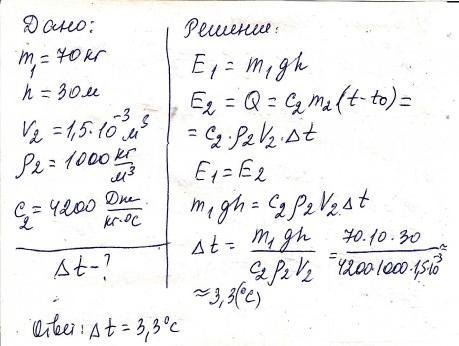 Дано:
m₁ = 70 кг
h = 30 м
V₂ = 1,5·10⁻³ м³
ρ₂ = 1000 кг/м³
c₂ = 4200 Дж/кг·°C
Δt - ?
Решение:
E₁ = m₁gh
E₂ = Q = c₂m₂(t-t₀) =
= c₂·ρ₂V₂·Δt
E₁ = E₂
m₁gh = c₂ρ₂V₂Δt
Δt = m₁gh/c₂ρ₂V₂ = 70·10·30/4200·1000·1,5·10⁻³ ≈
≈ 3,3(°C)
Ответ: Δt = 3,3°C